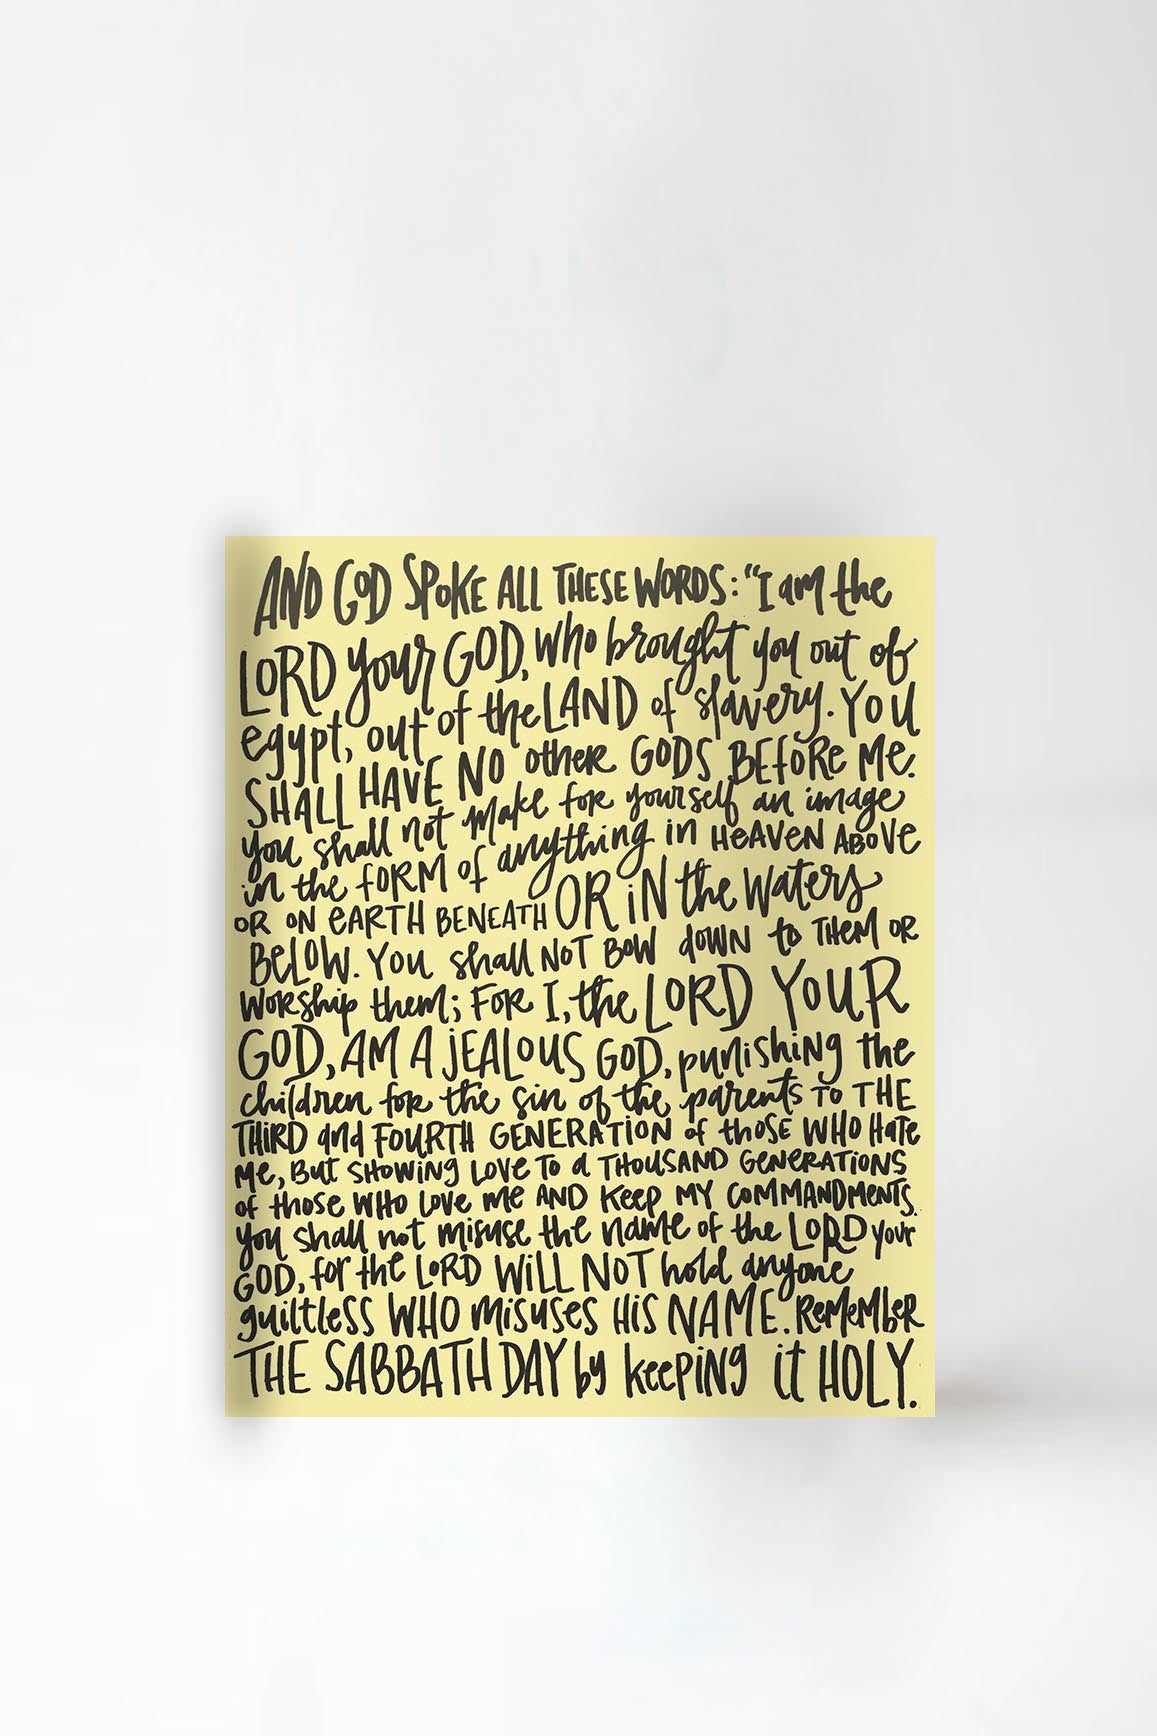 AND GOD SPOKE ALL THESE WORDS: "I am the
LORD your GOD, who brought you out of
egypt, out of the LAND of slavery. YOU
SHALL HAVE NO other GODS BEFORE Me.
you shall not make for yourself an image
in the FORM of anything in HEAVEN ABOVE
OR ON EARTH BENEATH OR iN the waters
BELOW. YOU shall NOT BOW down to THEM OR
worship them; FOR I, the LORD YOUR
GOD, AM A JEALOUS GOD, punishing the
children for the sin of the parents TO THE
THIRD and FOURTH GENERATION of those WHO Hate
Me, But SHOWING LOVE TO a THOUSAND GENERATIONS
of those WHO Love me AND Keep MY COMMANDMENTS.
you shall not misuse the name of the LORD your
GOD, for the LORD WILL NOT hold anyone
guiltless WHO misuses His NAME. ReMeMbeR
THE SABBATH DAY by keeping it HOLY.